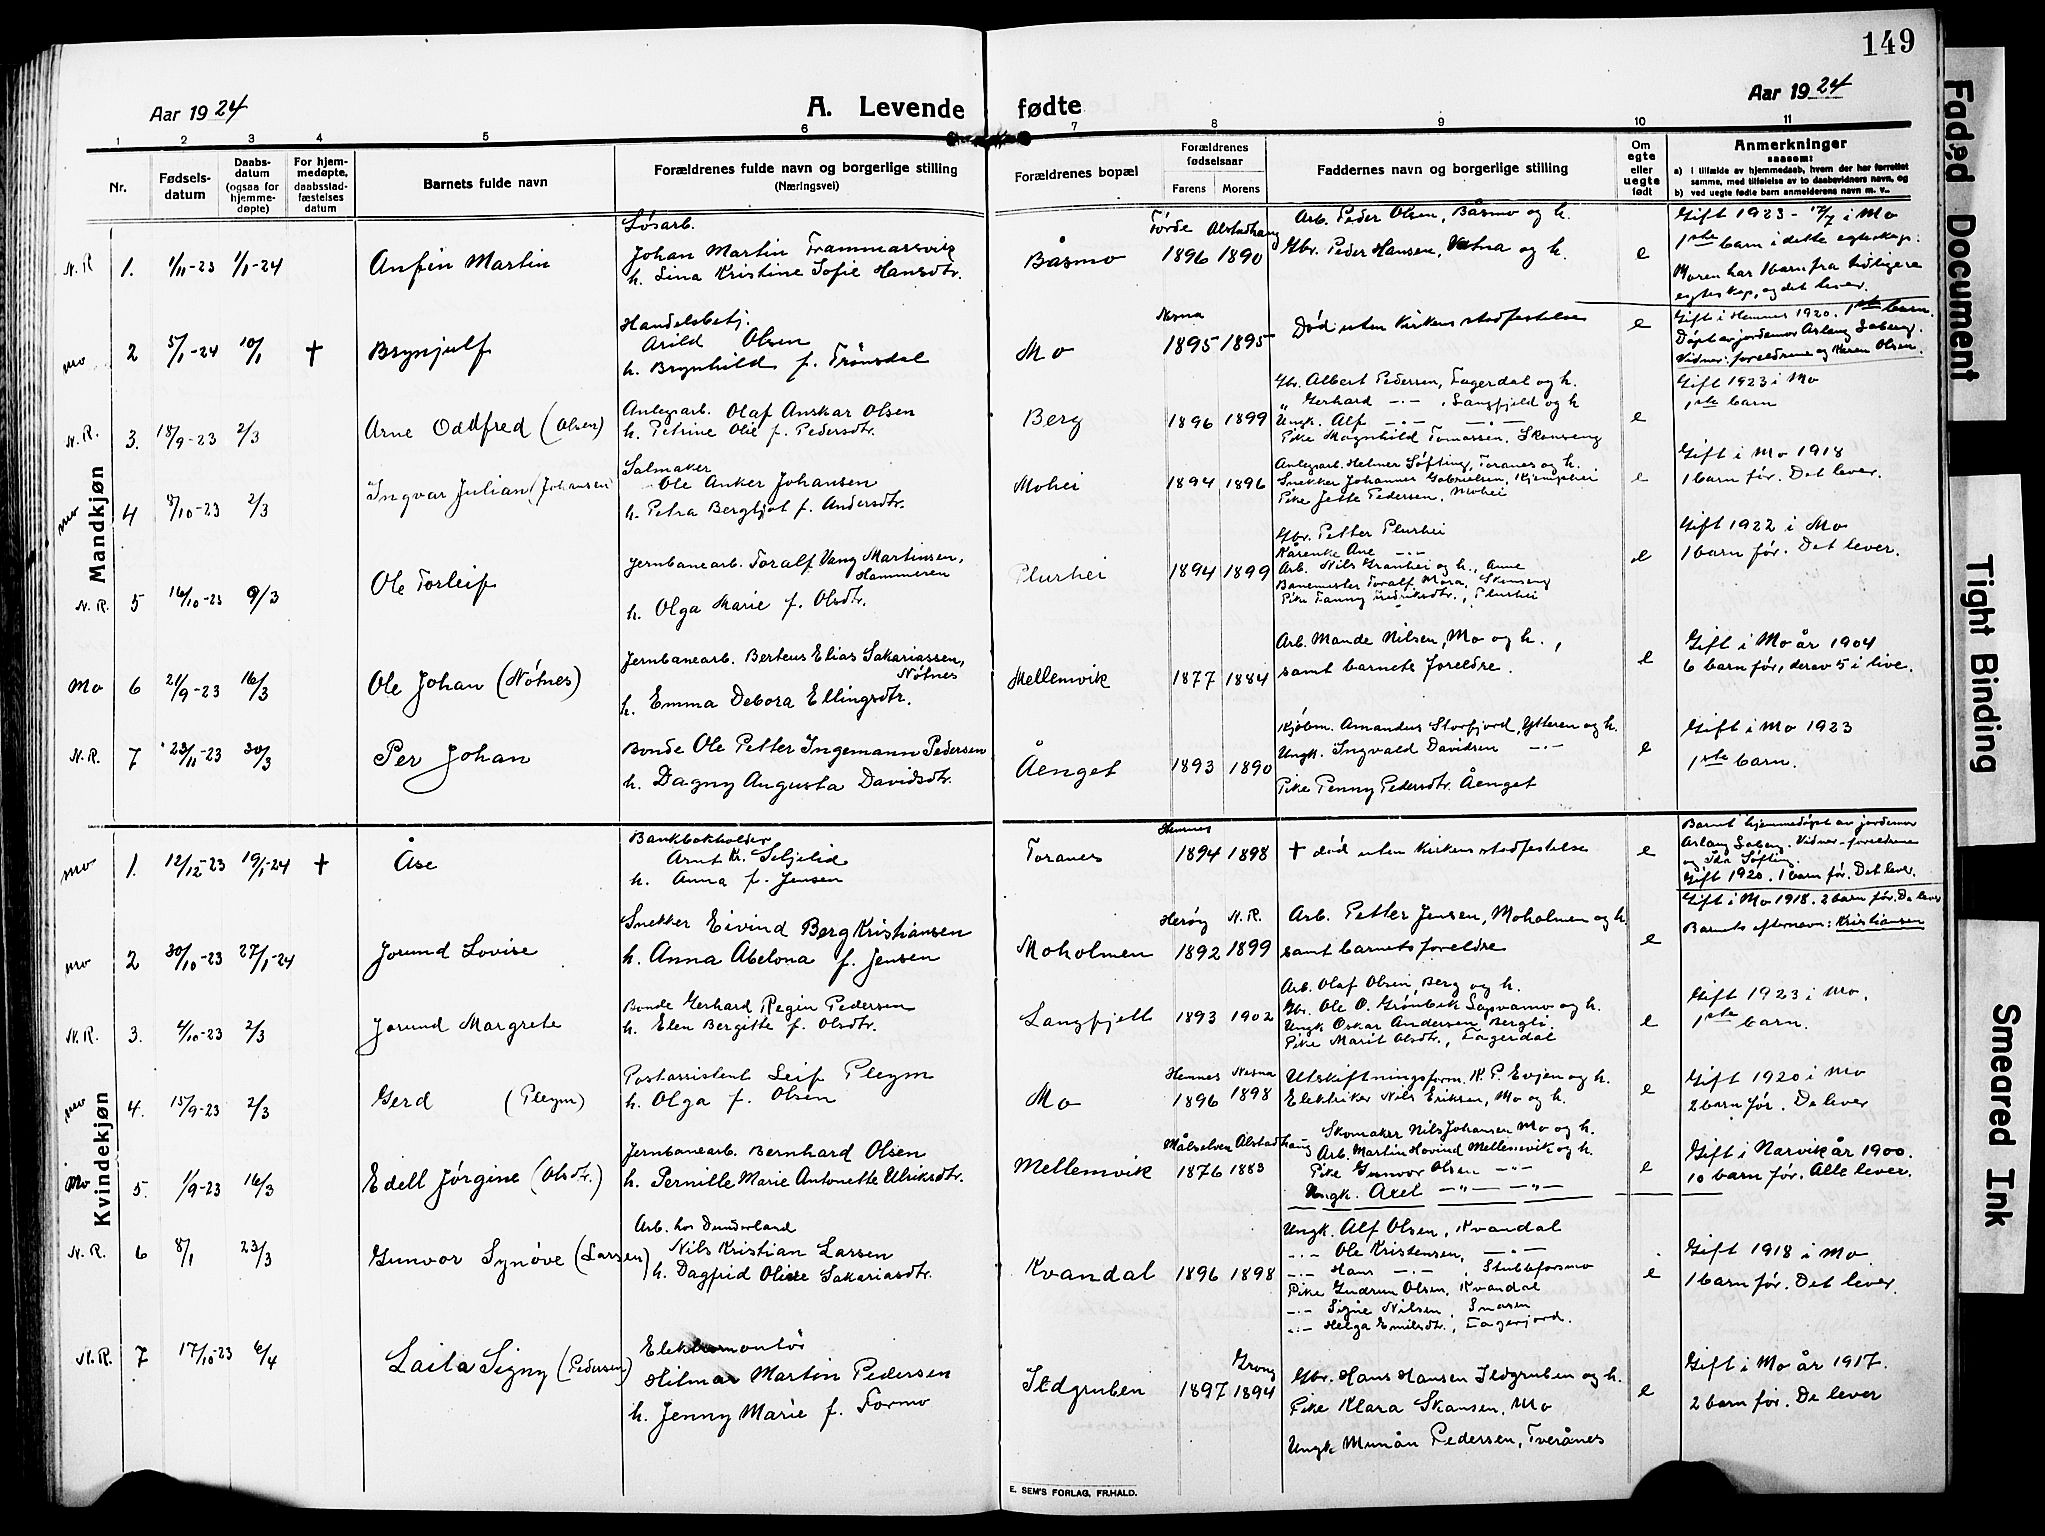 149
Aar 1924
A. Levende fødte
Aar 1924
1 2 3 4 5 6 7 8 9 10 11
Nr.
Fødsels-
datum
Daabs-
datum
(ogsaa for
hjemme-
døpte)
For hjem-
medøpte,
daabsstad-
fæstelses
datum
Barnets fulde navn
Forældrenes fulde navn og borgerlige stilling
(Næringsvei)
Forældrenes bopæl
Forældrenes
fødselsaar
Farens Morens
Faddernes navn og borgerlig stilling
Om
egte
eller
uegte
født
Anmerkninger
saasom:
a) i tilfælde av hjemmedaab, hvem der har forrettet
samme, med tilføielse av to daabsvidners navn, og
b) ved uegte fødte barn anmelderens navn m. v..
Mandkjøn
N.R. 1. 1/11-23 1/1-24 Anfin Martin
Løsarb.
Johan Martin
h. Lina Kristine Sofie Hansdtr.
Båsmo
Førde Alstadhaug
1896 1890
Arb. Peder Olsen, Båsmo og h.
Gbr. Peder Hansen, og h.
e
Gift 1923 - 17/7 i Mo
1ste barn i dette egteskap:
Moren har 1 barn fra tidligere
egteskap, og det lever.
mo 2 5/1-24 10/1 † Brynjulf
Handelsbetj.
Arild Olsen
h. Brynhild f. Trønsdal
Mo
Nesna
1895 1895
Død uten Kirkens stadfestelse
e
Gift i Hemnes 1920. 1ste barn.
Døpt av jordemor Aslaug Soberg.
Vidner: foreldrene og Karen Olsen.
N.R. 3. 18/9-23 2/3 Arne Oddfred (Olsen)
Anlegsarb. Olaf Anskar Olsen
h. Petrine Olie f. Pedersdtr.
Berg
1896 1899
Gbr. Albert Pedersen, Fagerdal og h.
„ Gerhard -·- , Langfjeld og h
Ungk. Alf -·- -·-
Pike Magnhild Tomassen, Skonseng
e
Gift 1923 i Mo
1ste barn
mo 4 8/10-23 2/3 Ingvar Julian (Johansen
Salmaker
Ole Anker Johansen
h. Petra Bergljot f. Andersdtr.
Mohei
1894 1896
Anlegsarb. Helmer Søfting, Toranes og h.
Snekker Johannes Gabrielsen, Kjemphei
Pike Jette Pedersen, Mohei
e
Gift i Mo 1918
1 barn før. Det lever.
N.R. 5 16/10-23 9/3 Ole Torleif
Jernbanearb. Toralf Vang Martinsen,
Hammeren
h. Olga Marie f. Olsdtr.
Plurhei
1894 1899
Gbr. Petter Plurhei
Kårenke Ane -·-
Arb. Nils Granhei og h., Ane
Banemester Toralf Mora, Skonseng
Pike Fanny Fredriksdtr., Plurhei
e
Gift 1922 i Mo
1 barn før. Det lever.
Mo 6 21/9-23 16/3 Ole Johan (Nøtnes)
Jernbanearb. Berteus Elias Sakariassen,
Nøtnes
h. Emma Debora Ellingsdtr.
Mellemvik
1877 1884
Arb. Mande Nilsen, Mo og h.,
samt barnets foreldre.
e
Gift i Mo år 1904
6 barn før, derav 5 i live.
N.R. 7 23/11-23 30/3 Per Johan
Bonde Ole Petter Ingemann Pedersen
h. Dagny Augusta Davidsdtr.
Åenget
1893 1890
Kjøbm. Amandus Storfjord, Ytteren og h.
Ungk. Ingvald Davidsen -·-
Pike Penny Pedersdtr. Åenget
e
Gift i Mo 1923
1ste barn.
Kvindekjøn
mo 1. 12/12-23 19/1-24 † Åse
Bankbokholder
Arnt Kr. Seljelid
h. Anna f. Jensen
Toranes
Hemnes
1894 1898
† død uten Kirkens stadfestelse
e
Barnet hjemmedøpt av jordemor
Aslaug Soberg. Vidner - foreldrene
og Ida Søfting.
Gift 1920. 1 barn før. Det lever.
mo 2 30/10-23 27/1-24 Jorund Lovise
Snekker Eivind Berg Kristiansen
h. Anna Abelona f. Jensen
Moholmen
Herøy N.R.
1892 1899
Arb. Petter Jensen, Moholmen og h
samt barnets foreldre
e
Gift i Mo 1918. 2 barn før. De lever
Barnets efternavn: Kristiansen
N.R. 3. 4/10-23 2/3 Jorund Margrete
Bonde Gerhard Regin Pedersen
h. Elen Bergitte f. Olsdtr.
Langfjell
1893 1902
Arb. Olaf Olsen, Berg og h.
Gbr. Ole O. Grønbek Lapvamo og h.
Ungk Oskar Andersen Bergli.
Pike Marit Olsdtr., Fagerdal
e
Gift 1923 i Mo.
1ste barn.
mo 4. 15/9-23 2/3 Gerd (Pleym)
Postassistent Leif Pleym
h. Olga f. Olsen
Mo
Hemnes Nesna
1896 1898
Utskiftningsform. K. P. Evjen og h.
Elektriker Nils Eriksen, Mo og h.
e
Gift 1920 i Mo
2 barn før. De lever
Mo 5. 1/9-23 16/3 Edell Jørgine (Olsdtr.)
Jernbanearb. Bernhard Olsen
h. Pernille Marie Antonette Ulriksdtr.
Mellemvik
Målselven Alstadhaug
1876 1883
Skomaker Nils Johansen Mo og h.
Arb. Martin Hovind Mellemvik og h.
Pike Gunvor Olsen -"-
Ungk. Axel -"- -"-
e
Gift i Narvik år 1900.
10 barn før. Alle lever.
N.R. 6 8/1 23/3 Gunvor Synøve (Larsen)
Arb. hos Dunderland
Nils Kristian Larsen
h. Dagfrid Olise Sakariasdtr.
Kvandal
1896 1898
Ungk. Alf Olsen, Kvandal
-·- Ole Kristensen, -·-
-·- Hans -·- , Stubbforsmo
Pike Gudrun Olsen, Kvandal
-·- Signe Nilsen, Snaren
-·- Helga Emilsdtr., Fagerjord.
e
Gift 1918 i Mo
1 barn før. Det lever.
N.R. 7 17/10-23 6/4 Laila Signy (Pedersen)
Elektromontør
Hilmar Martin Pedersen
h. Jenny Marie f. Formo
Ildgruben
Grong
1897 1894
Gbr. Hans Hansen Ildgruben og h.
Pike Klara Skansen, Mo
Ungk Munån Pedersen, Tverånes
e
Gift i Mo år 1917.
2 barn før. De lever
E. SEM'S FORLAG, FR.HALD.
Faded Document
Tight Binding
Smeared Ink